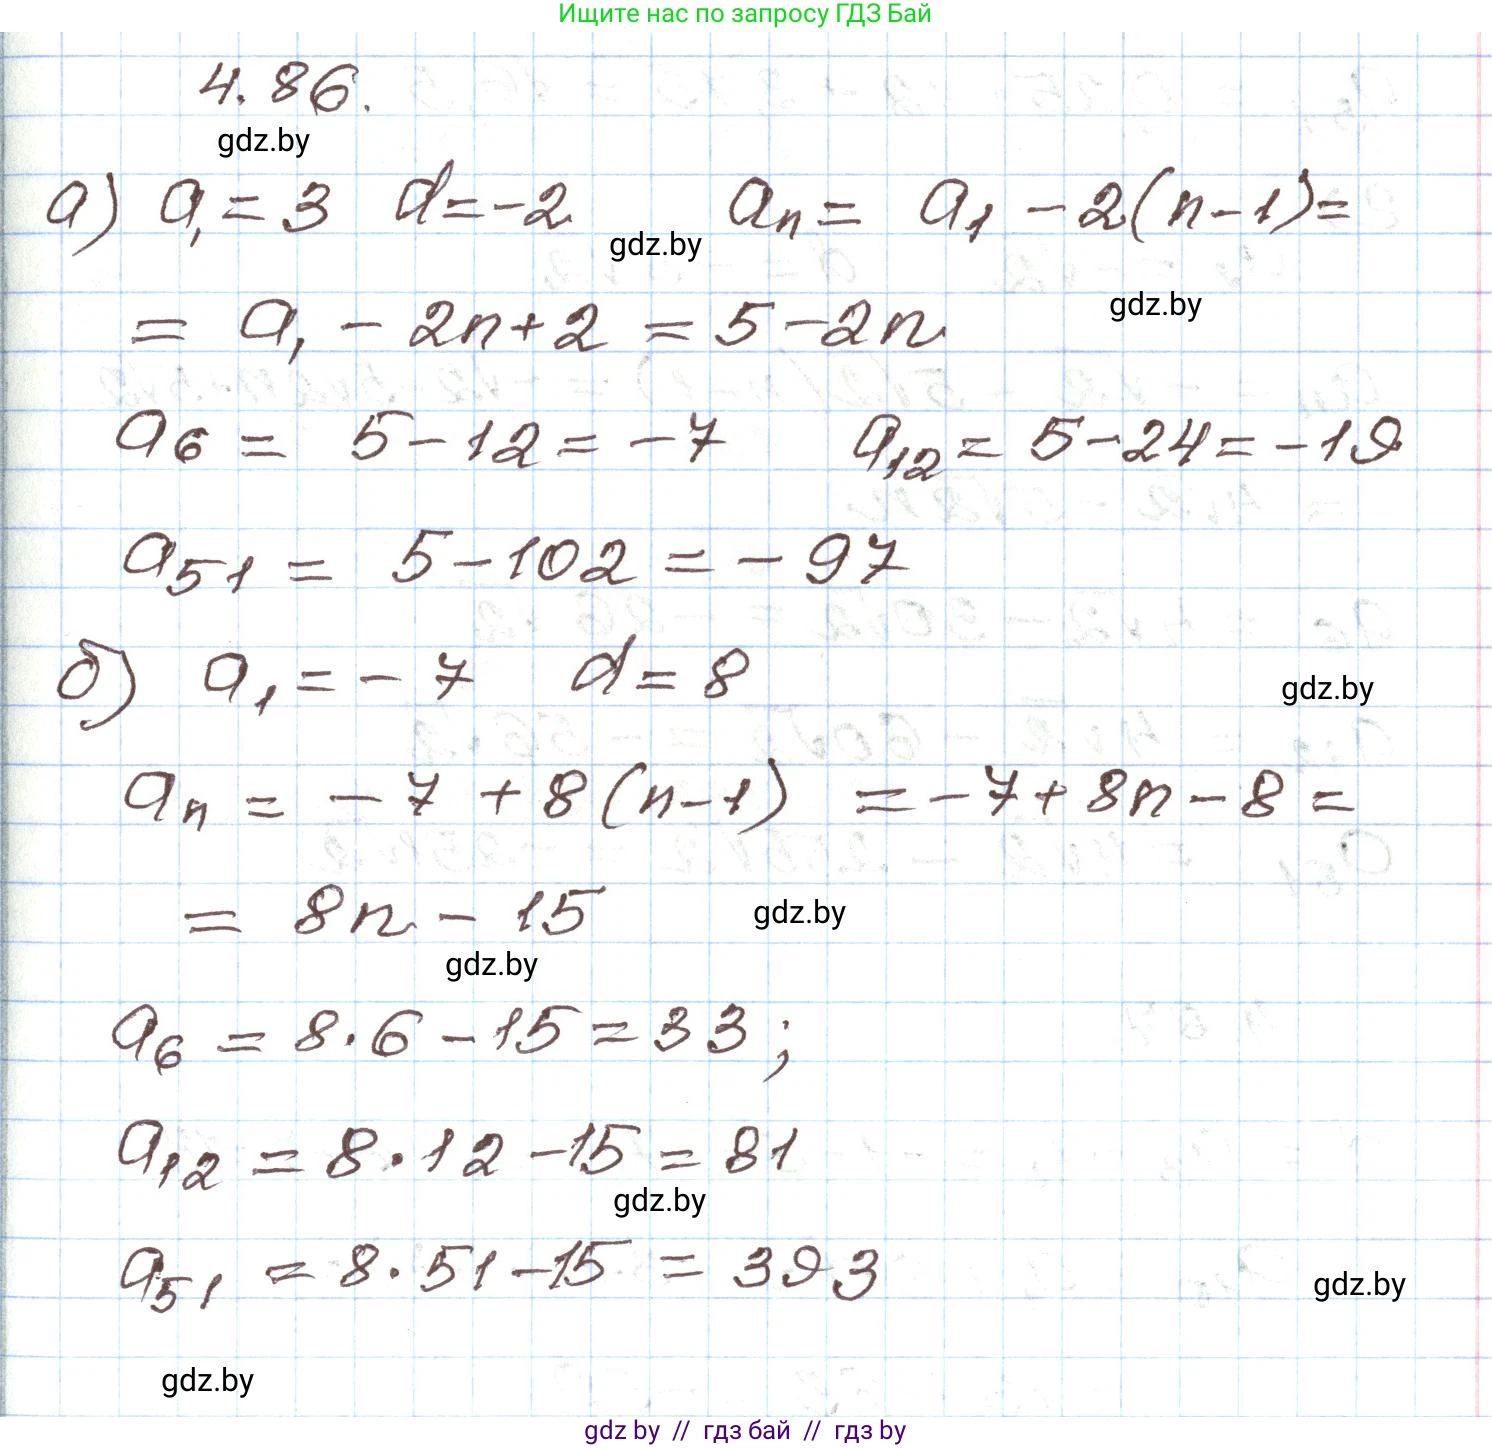 Ищите нас по запросу ГДЗ Бай
4.86.
gdz.by
а) a₁ = 3 d = -2 aₙ = a₁ - 2(n-1) =
gdz.by
gdz.by
= a₁ - 2n + 2 = 5 - 2n
a₆ = 5 - 12 = -7 a₁₂ = 5 - 24 = -19
a₅₁ = 5 - 102 = -97
б) a₁ = -7 d = 8
gdz.by
aₙ = -7 + 8(n-1) = -7 + 8n - 8 =
= 8n - 15
gdz.by
gdz.by
a₆ = 8·6 - 15 = 33;
a₁₂ = 8·12 - 15 = 81
gdz.by
a₅₁ = 8·51 - 15 = 393
gdz.by
gdz.by
gdz by // гдз бай // gdz by